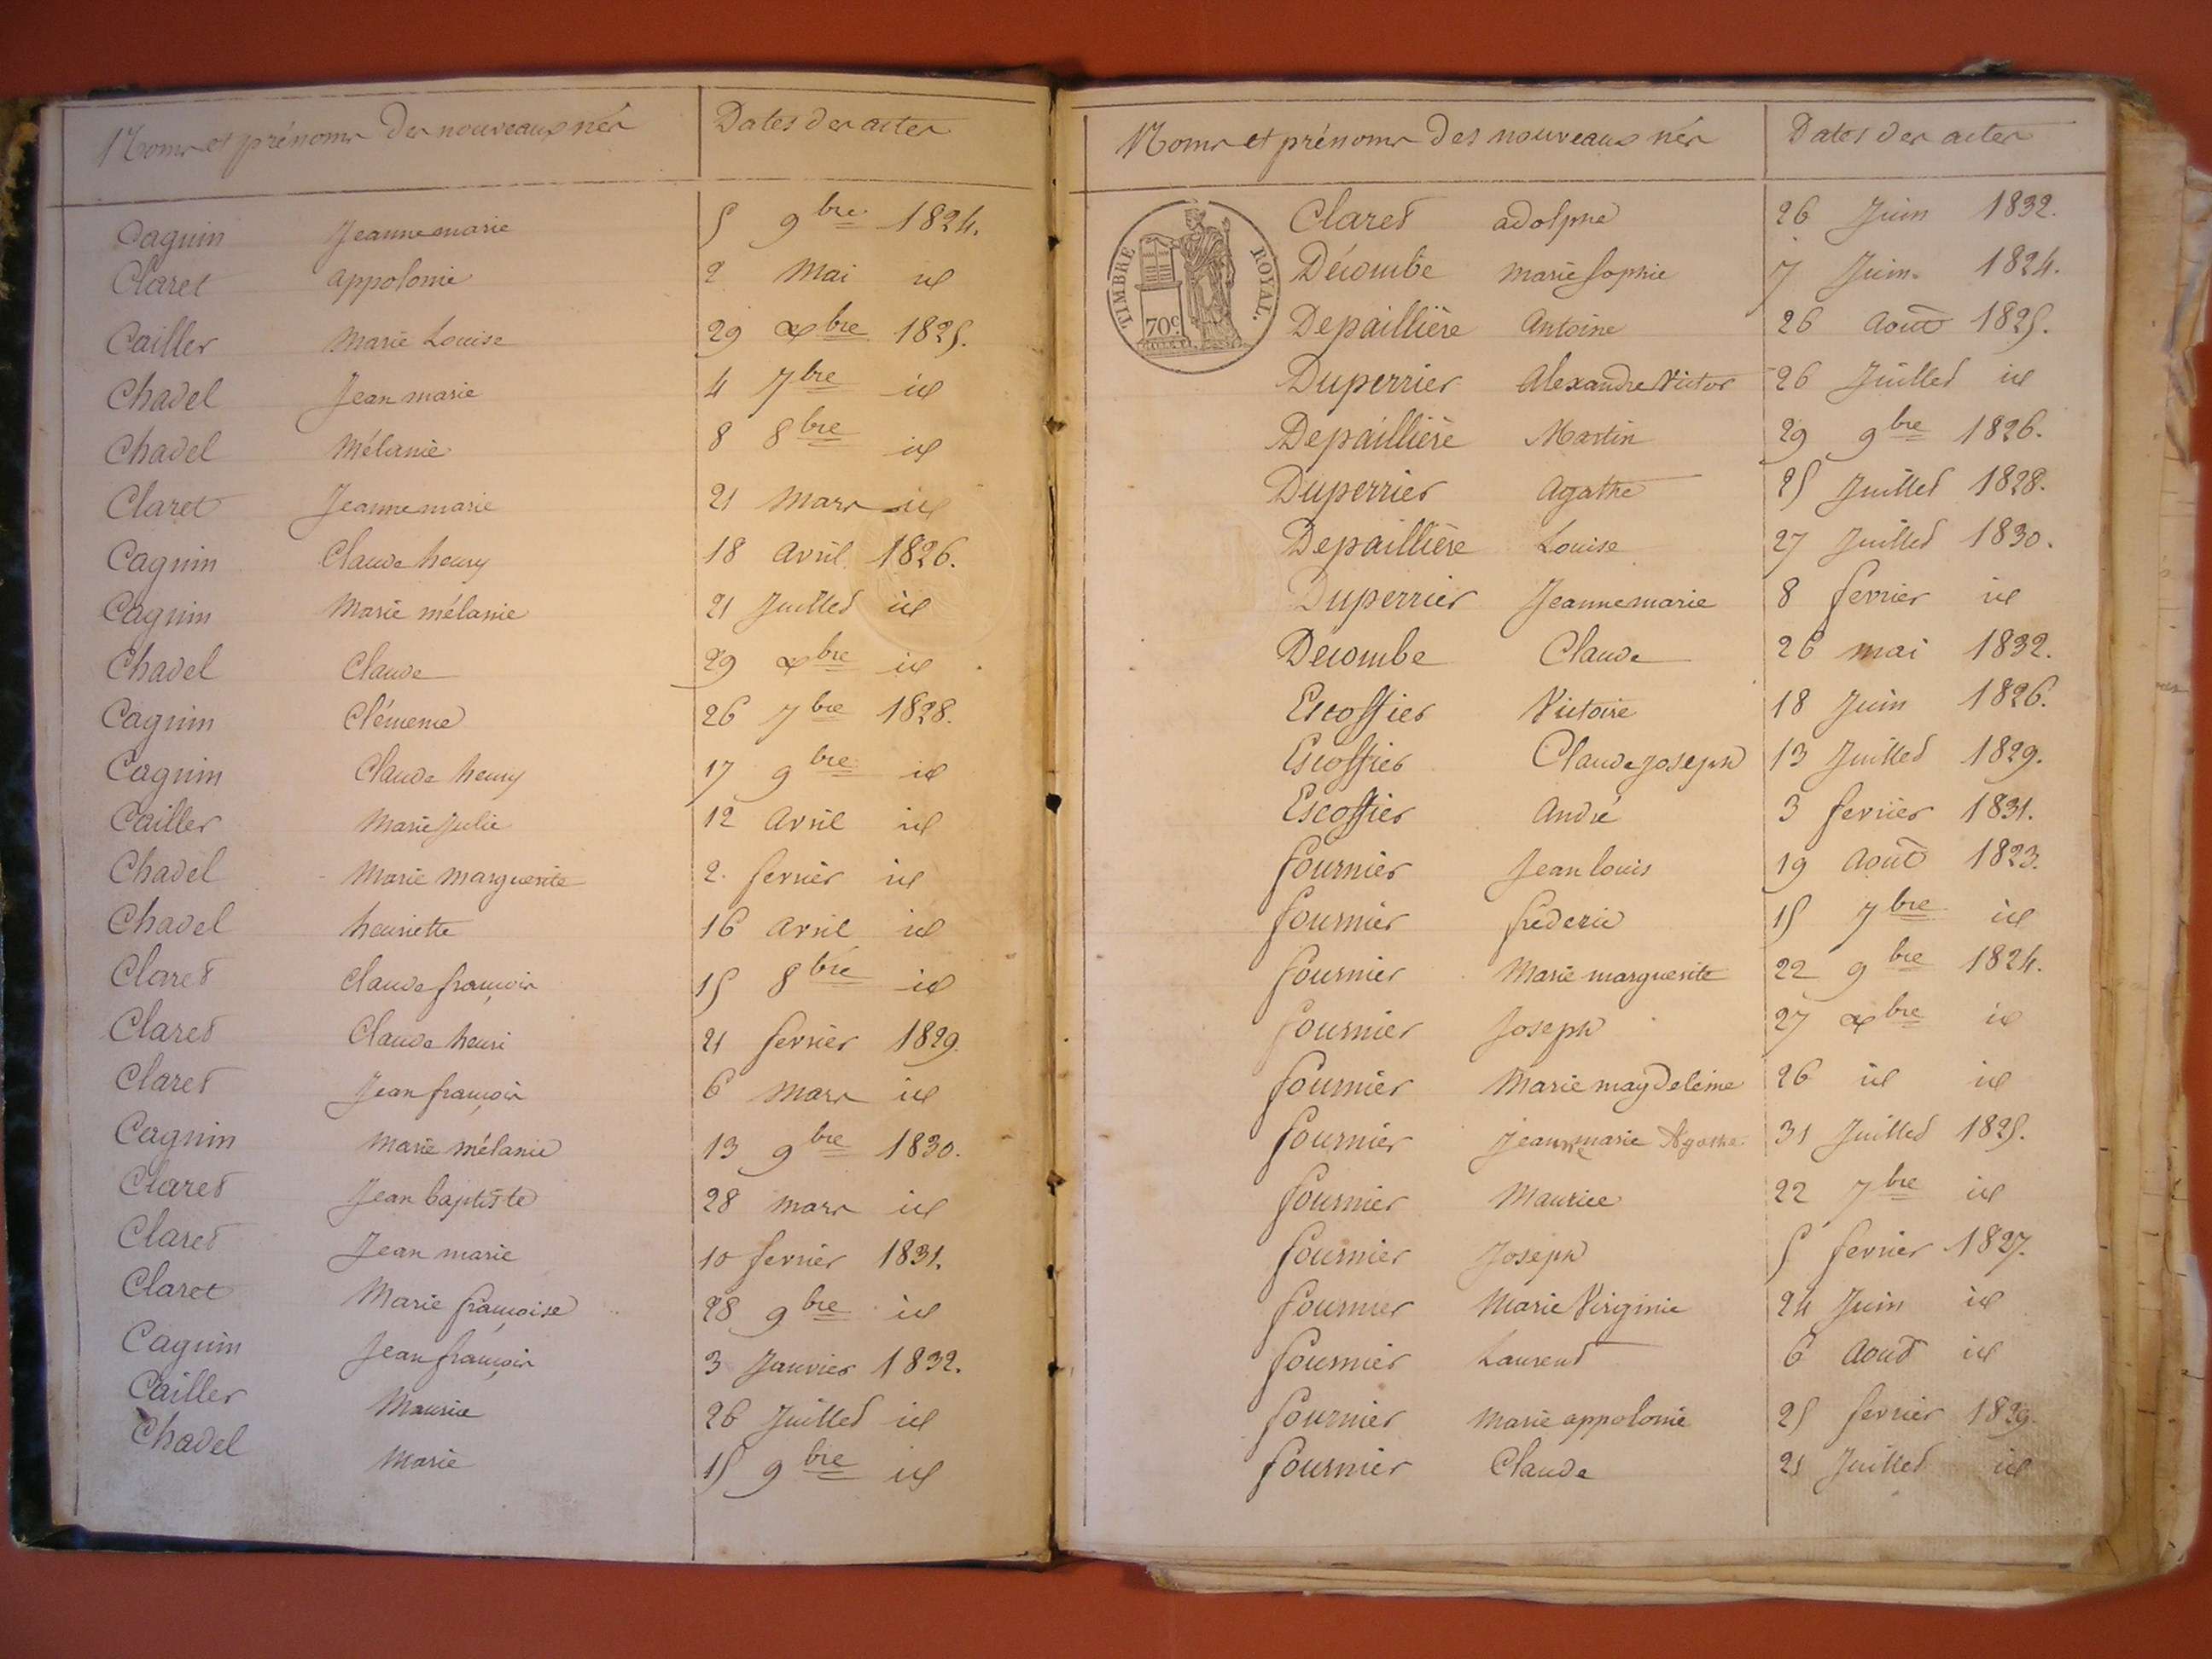 Noms et prénoms des nouveaux nés Dates des actes
Caguin Jeanne marie 5 9bre 1824.
Claret appolonie 2 Mai id
Cailler Marie Louise 29 xbre 1825.
Chadel Jean marie 4 7bre id
Chadel Mélanie 8 8bre id
Claret Jeanne marie 21 Mars id
Caguin Claude henry 18 Avril 1826.
Caguin Marie mélanie 21 Juillet id
Chadel Claude 29 xbre id
Caguin Clémence 26 7bre 1828.
Caguin Claude henry 17 9bre id
Cailler Marie Julie 12 Avril id
Chadel Marie Marguerite 2. fevrier id
Chadel henriette 16 Avril id
Claret Claude françois 15 8bre id
Claret Claude henri 21 fevrier 1829.
Claret Jean françois 6 Mars id
Caguin Marie mélanie 13 9bre 1830.
Claret Jean baptiste 28 mars id
Claret Jean marie 10 fevrier 1831.
Claret Marie françoise 28 9bre id
Caguin Jean françois 3 Janvier 1832.
Cailler Maurice 26 Juillet id
Chadel Marie 15 9bre id
Noms et prénoms des nouveaux nés Dates des actes
TIMBRE ROYAL.
70c.
Claret adolphe 26 Juin 1832.
Décombe marie Sophie 7 Juin 1824.
Depaillière Antoine 26 Août 1825.
Duperrier Alexandre Victor 26 Juillet id
Depaillière Martin 29 9bre 1826.
Duperrier Agathe 25 Juillet 1828.
Depaillière Louise 27 Juillet 1830.
Duperrier Jeanne marie 8 fevrier id
Decombe Claude 26 mai 1832.
Escoffier Victoire 18 Juin 1826.
Escoffier Claude joseph 13 Juillet 1829.
Escoffier André 3 fevrier 1831.
fournier Jean louis 19 Août 1823.
fournier fréderic 15 7bre id
fournier Marie marguerite 22 9bre 1824.
fournier Joseph 27 xbre id
fournier Marie magdeleine 26 id id
fournier jeanne marie Agathe 31 Juillet 1825.
fournier Maurice 22 7bre id
fournier Joseph 5 fevrier 1827.
fournier Marie Virginie 24 Juin id
fournier Laurent 6 Aout id
fournier Marie appolonie 25 fevrier 1829.
fournier Claude 21 Juillet id